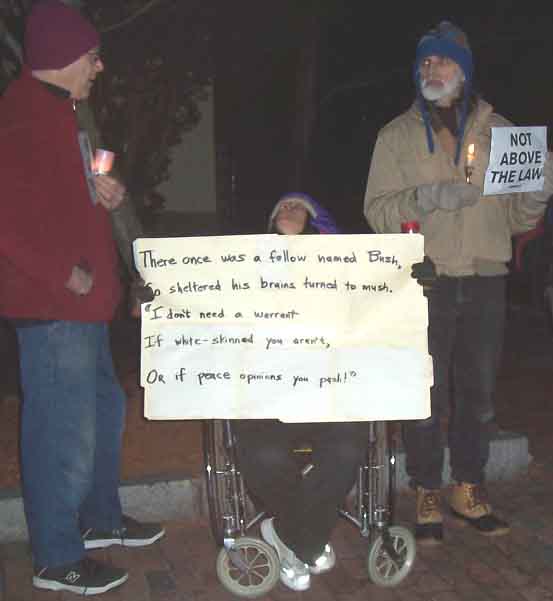 There once was a fellow named Bush,
So sheltered his brains turned to mush.
"I don't need a warrant
If white-skinned you aren't,
Or if peace opinions you push!"
NOT
ABOVE
THE LAW